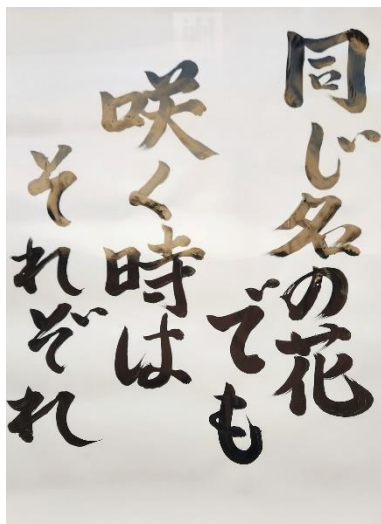 同じ名の花
でも
咲く時は
それぞれ